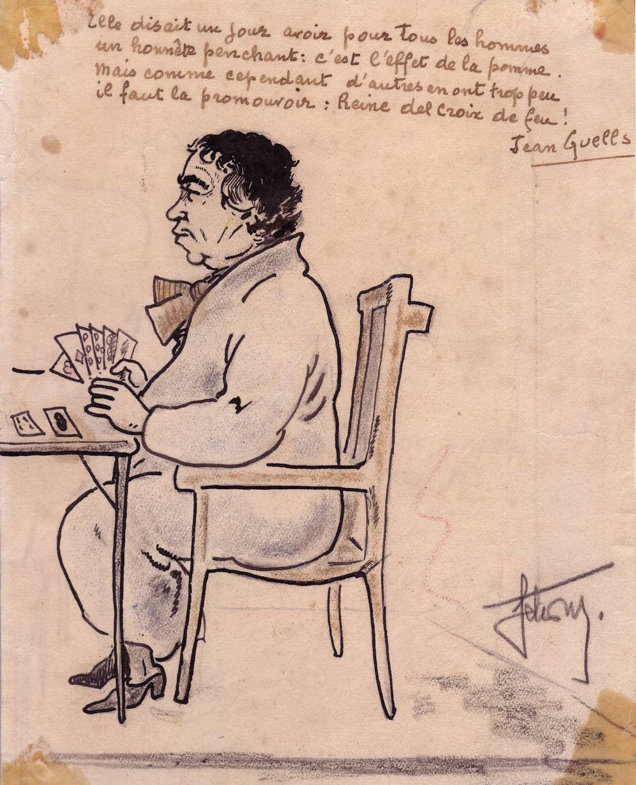 Elle disait un jour avoir pour tous les hommes
un honnête penchant : c'est l'effet de la pomme.
Mais comme cependant d'autres en ont trop peu
il faut la promouvoir : Reine del Croix de feu !
Jean Guells